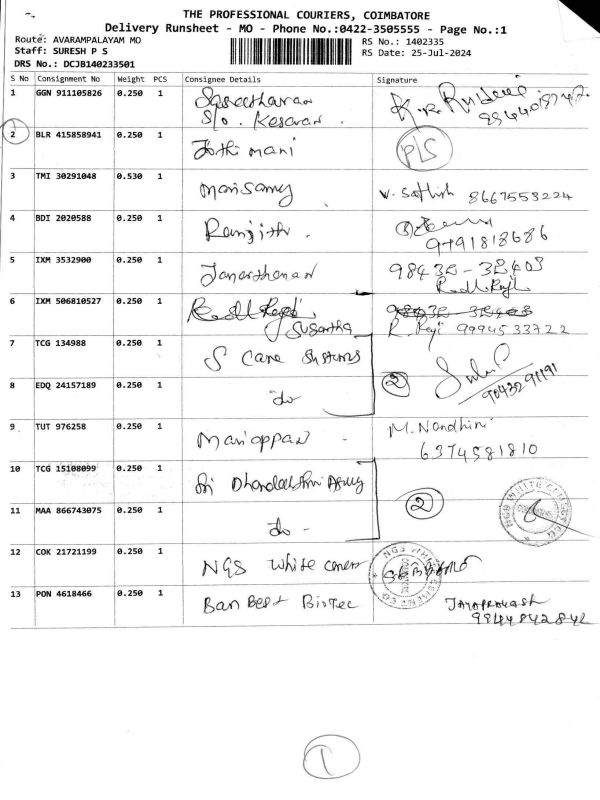 THE PROFESSIONAL COURIERS, COIMBATORE
Delivery Runsheet - MO - Phone No.:0422-3505555 - Page No.:1
Route: AVARAMPALAYAM MO
Staff: SURESH P S
DRS No.: DCJB140233501
RS No.: 1402335
RS Date: 25-Jul-2024
S No Consignment No Weight PCS Consignee Details Signature
1 GGN 911105826 0.250 1
S/o. Kesavan.
2 BLR 415858941 0.250 1 Jothi mani PLS
3 TMI 30291048 0.530 1 Marisamy V. Sathish 8667558224
4 BDI 2020588 0.250 1 Ranjith. 9791818686
5 IXM 3532900 0.250 1 Janarthanan
6 IXM 506810527 0.250 1 Susantha R. Raji 9994533722
7 TCG 134988 0.250 1 S Care Systems 2
9043291191
8 EDQ 24157189 0.250 1 do
9 TUT 976258 0.250 1 Mariappan - M. Nandhini
6374581810
10 TCG 15108099 0.250 1 Sri Dhanalakshmi Agency
2
11 MAA 866743075 0.250 1 do -
12 COK 21721199 0.250 1 NGS White cement
13 PON 4618466 0.250 1 Ban Best BioTec JAYAPRAKASH
9944842842
1